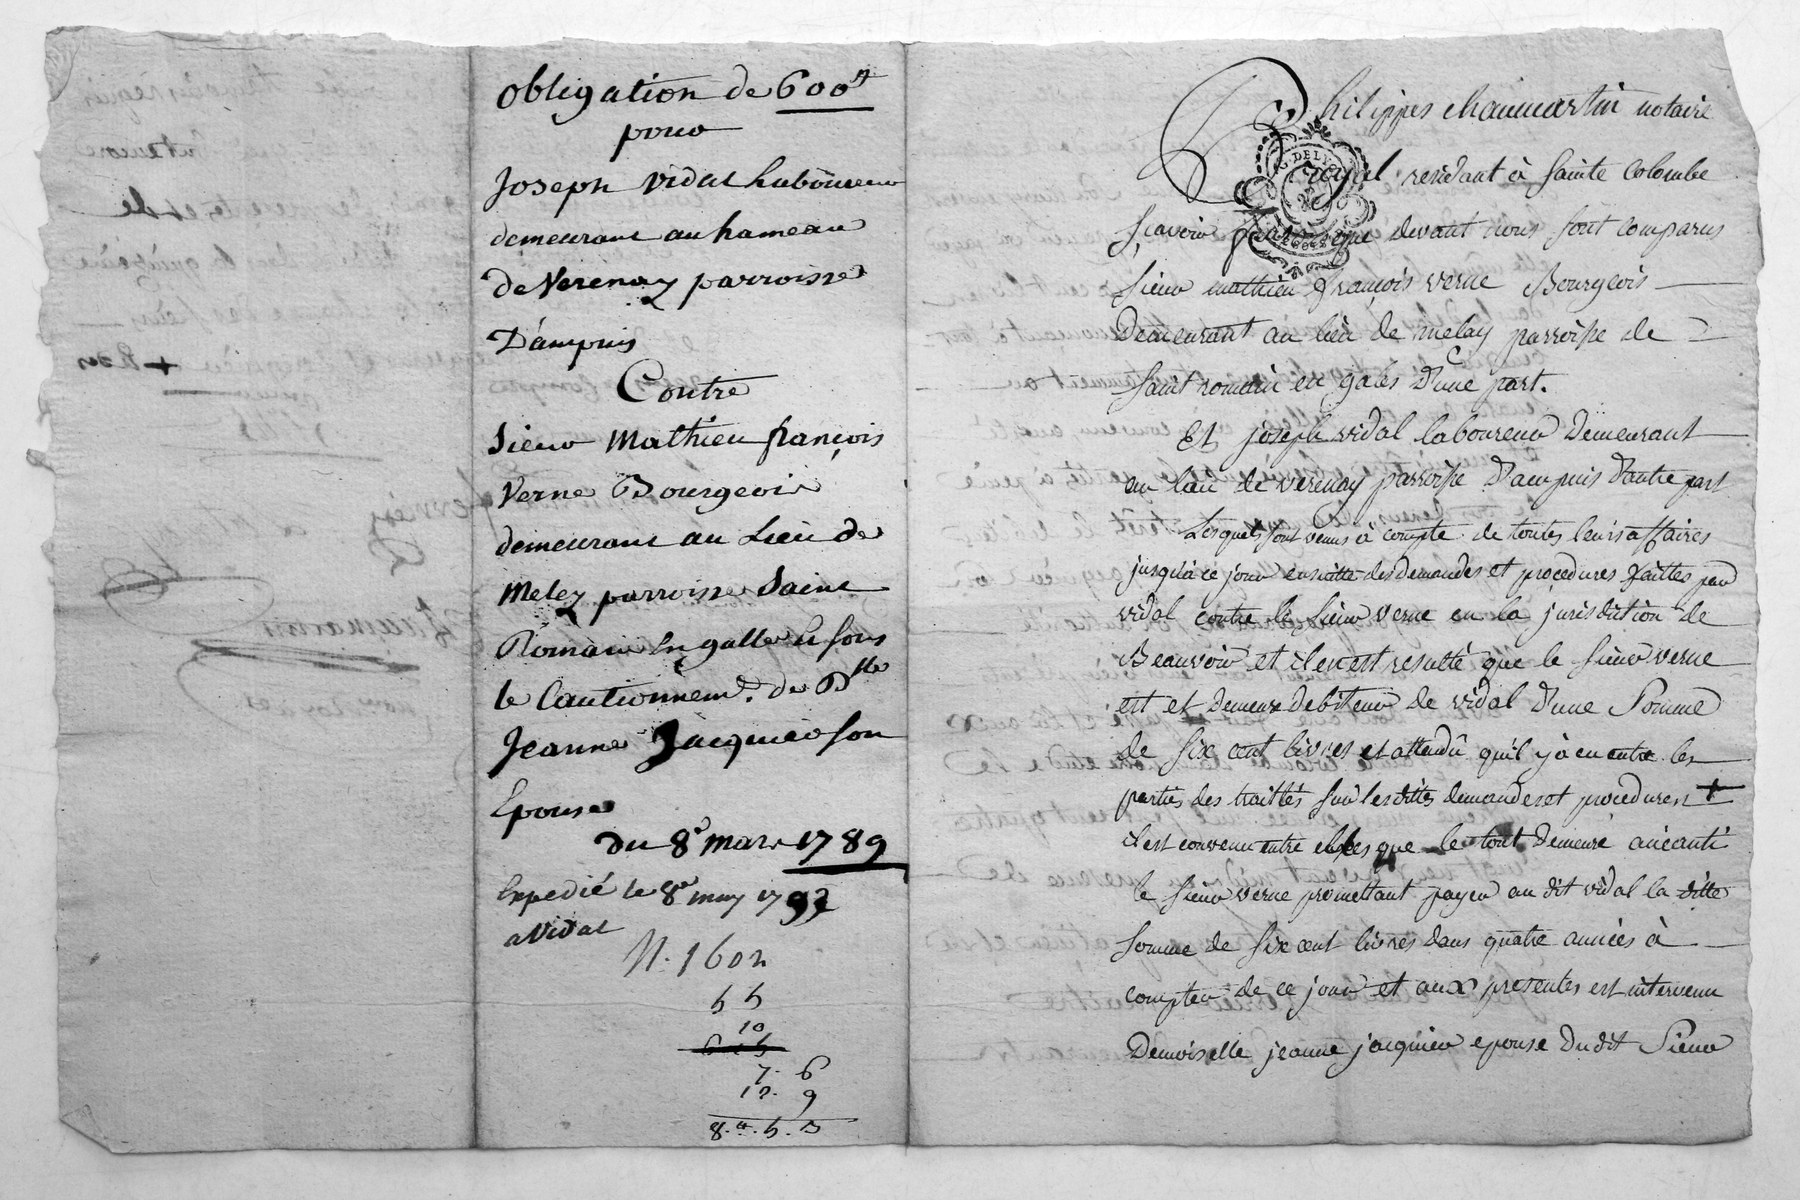 obligation de 600ᵗᵗ
pour
Joseph vidal laboureur
demeurant au hameau
de Verenay parroisse
D'ampuis
Contre
Sieur Mathieu françois
Verne Bourgeois
demeurant au Lieu de
Meley parroisse Saint
Romain En galle et sous
le Cautionnemt. de Dlle
Jeanne Jacquier son
Epouse
du 8e mars 1789
Expedié le 8e may 1793
a Vidal
N. 1602
5 5
10
7. 6
12. 9
8.ᵗᵗ. 5. 3
Philippes chaumartin notaire
royal residant à Sainte Colombe
Sçavoir faisons que devant nous sont comparus
Sieur mathieu françois verne Bourgeois
Demeurant au lieu de melay parroisse de
Saint romain en galles D'une part.
Et joseph vidal laboureur Demeurant
au lieu de verenay parroisse D'ampuis D'autre part
Lesquels sont venus à compte de toutes leurs affaires
jusqu'à ce jour ensuitte des demandes et procedures faittes par
vidal contre le Sieur verne en la jurisdiction de
Beauvoir et il en est resulté que le Sieur verne
est et Demeure debiteur de vidal D'une Somme
de six cent livres et attendu qu'il y à eu entre les
parties des traittés sur lesdittes demandes et procedures +
il est convenu entre elles que le tout Demeure anéanti
le Sieur verne promettant payer au dit vidal la ditte
Somme de six cent livres dans quatre années à
compter de ce jour et aux presentes est intervenu
Demoiselle jeanne jacquier epouse Dudit Sieur